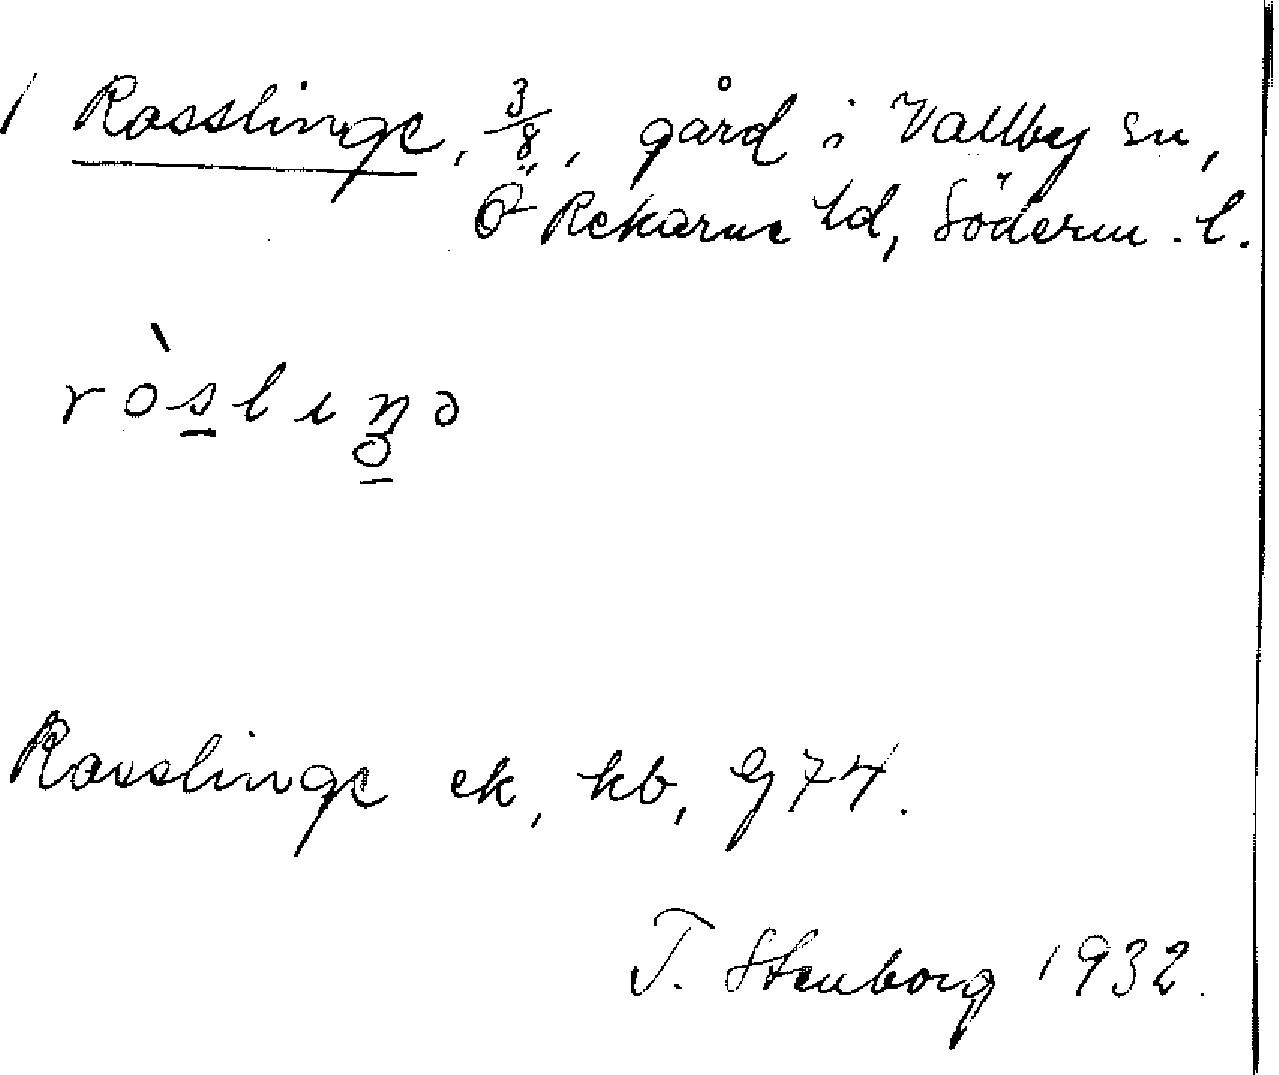 1 Rosslinge, 3/8, gård i Vallby sn,
Ö Rekarne hd, Söderm. l.
ròslıŋə
Rosslinge ek, kb, Gj 74.
T. Stenborg 1932.